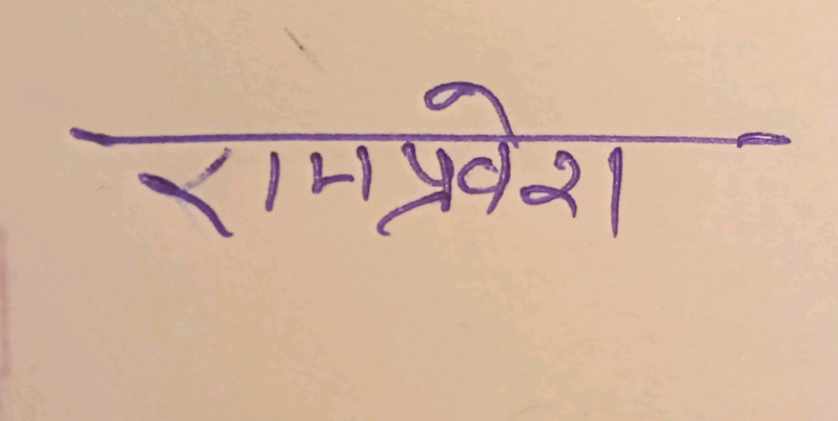 रामप्रवेश